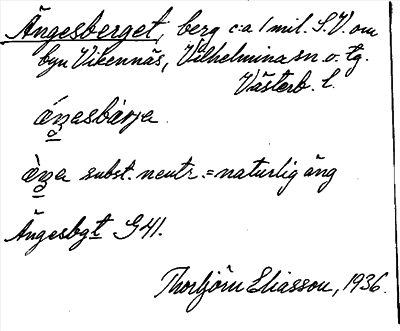 Ängesberget, berg c:a 1 mil. S.V. om
byn Vikennäs, Vilhelmina sn o. tg.
Västerb. l.
subst. neutr. = naturlig äng
Ängesbgt G 41.
Thorbjörn Eliasson, 1936.